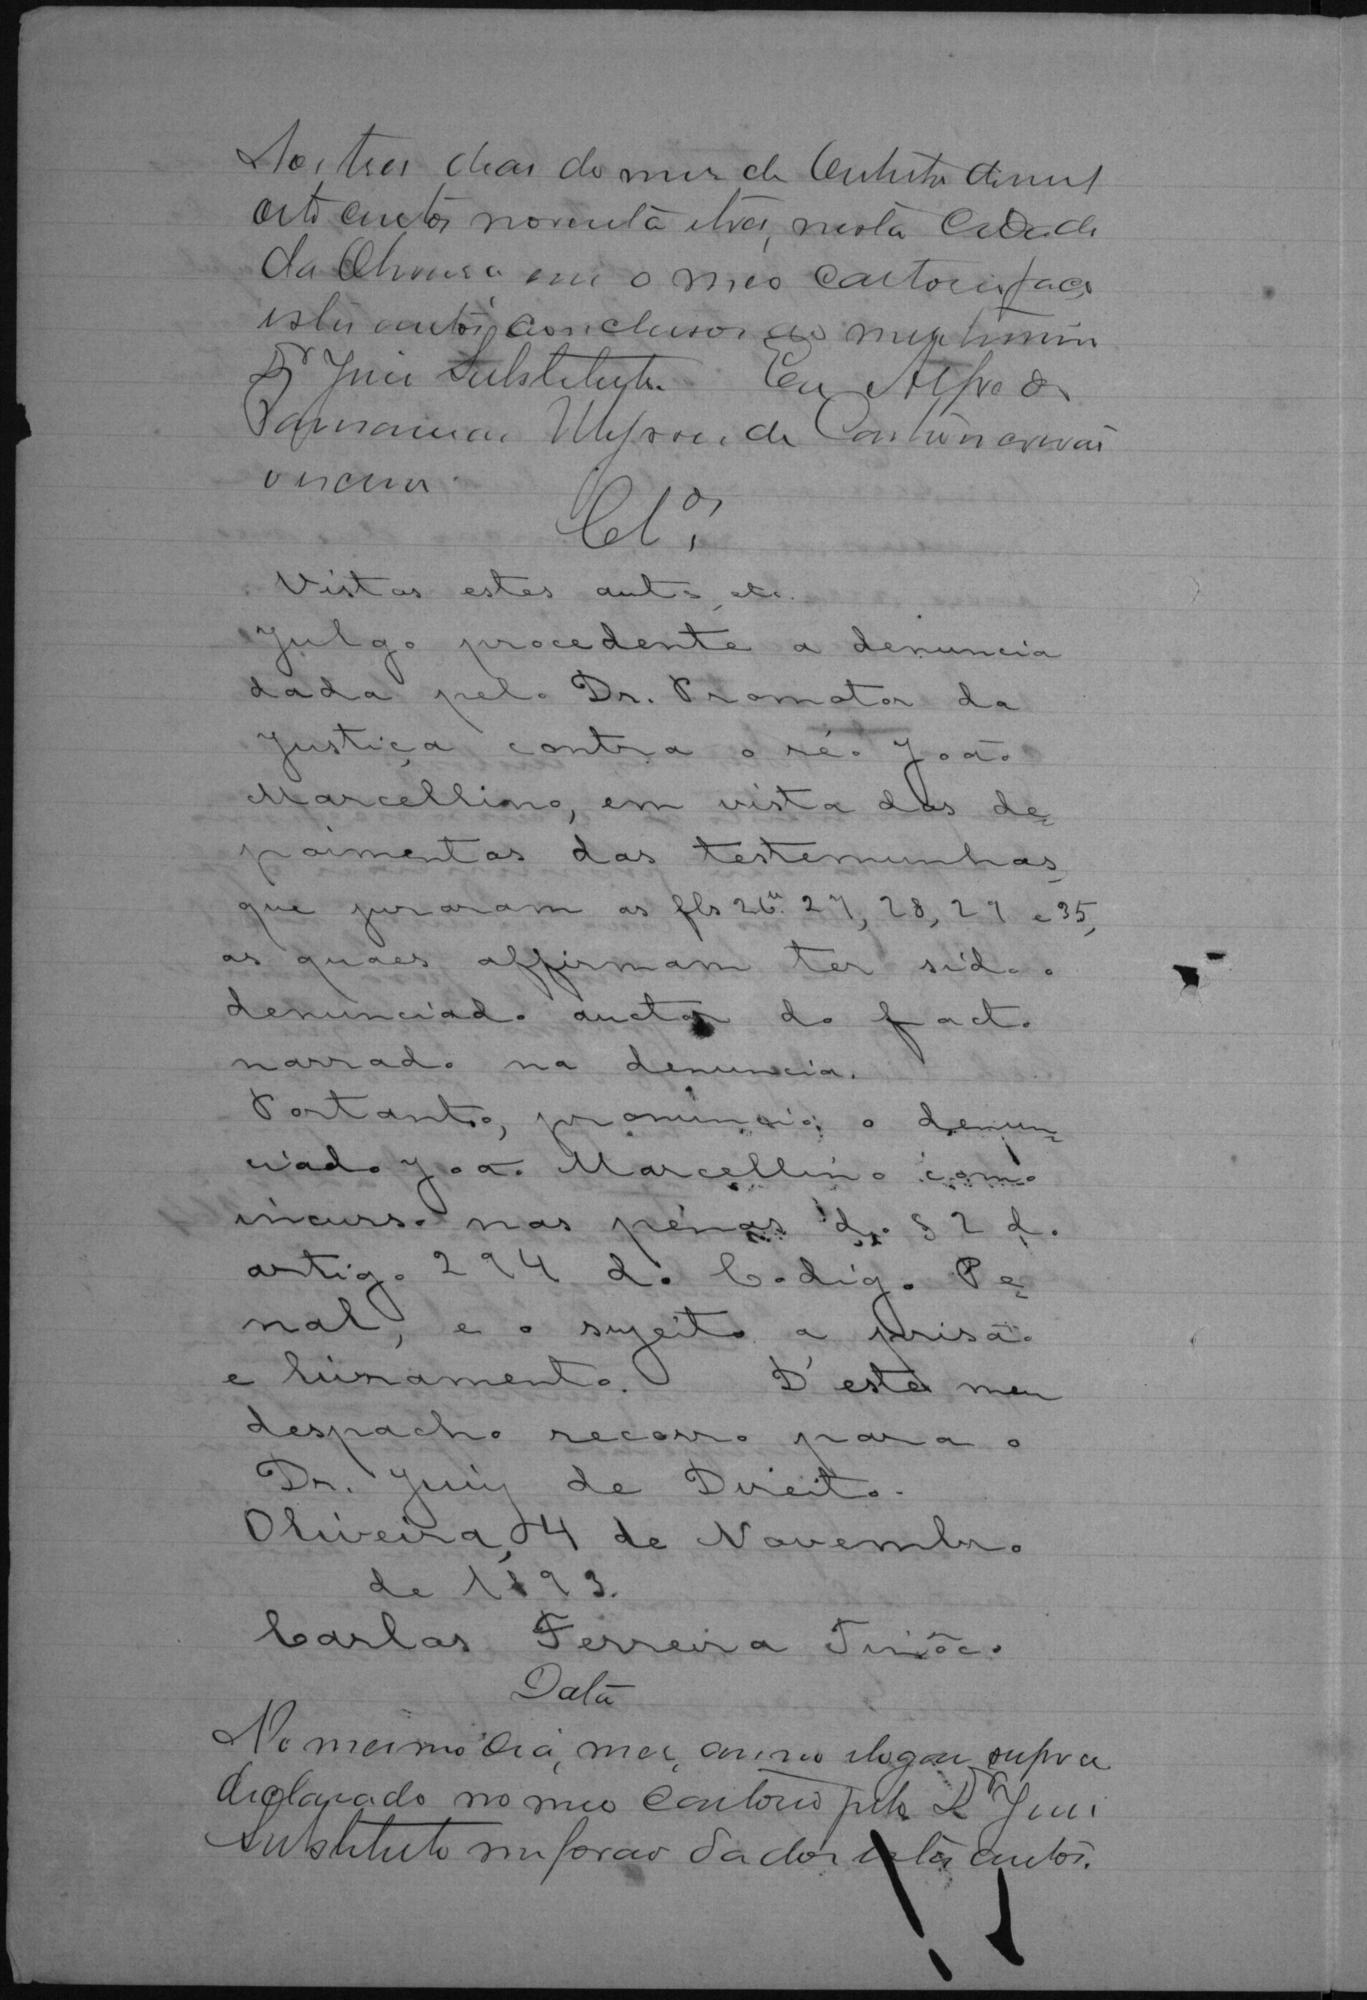 Aos tres dias do mez de Outubro de mil
oito centos noventa e tres, nesta Cidade
da Oliveira em o meo cartorio, faço
estes autos conclusos ao meritissimo
Dr Juiz Substituto. Eu Alfredo
de Castro
escrevi.
Cl.os
Vistos estes autos, etc.
Julgo procedente a denuncia
dada pelo Dr. Promotor da
Justiça, contra o réo João
Marcellino, em vista dos de-
poimentos das testemunhas,
que juraram as fls 26v. 27, 28, 29 e 35,
as quaes affirmam ter sido o
denunciado auctor do facto
narrado na denuncia.
Portanto, pronuncio, o denun-
ciado João Marcellino como
incurso nas penas do § 2 do
artigo 294 do Codigo Pe-
nal, e o sujeito a prisão
e livramento. D'este meu
despacho recorro para o
Dr. Juiz de Direito.
Oliveira, 4 de Novembro
de 1893.
Carlos Ferreira Tinôco.
Data
No mesmo dia, mez, anno e logar supra
declarado no meo cartorio pelo Dr Juiz
Substituto me forão dados estes autos.